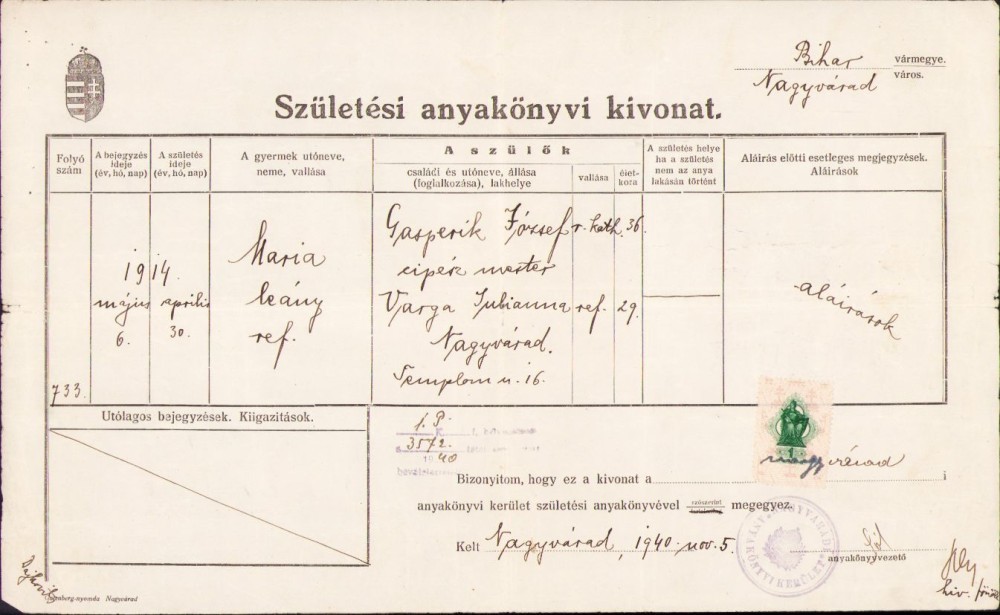 Bihar vármegye.
Nagyvárad város.
Születési anyakönyvi kivonat.
Folyó szám
A bejegyzés ideje (év, hó, nap)
A születés ideje (év, hó, nap)
A gyermek utóneve, neme, vallása
A szülők
családi és utóneve, állása (foglalkozása), lakhelye
vallása
élet-kora
A születés helye ha a születés nem az anya lakásán történt
Aláírás előtti esetleges megjegyzések. Aláírások
733.
1914.
május 6.
április 30.
Maria
leány
ref.
Gasperik József r. kath. 36.
cipész mester
Varga Julianna ref. 29.
Nagyvárad.
Templom u. 16.
aláirások
Utólagos bejegyzések. Kiigazitások.
1. P.
3572.
1940
1
Bizonyitom, hogy ez a kivonat a nagyváradi
anyakönyvi kerület születési anyakönyvével szószerint megegyez.
Kelt Nagyvárad, 1940. nov. 5.
anyakönyvvezető
hiv.
-nyomda Nagyvárad